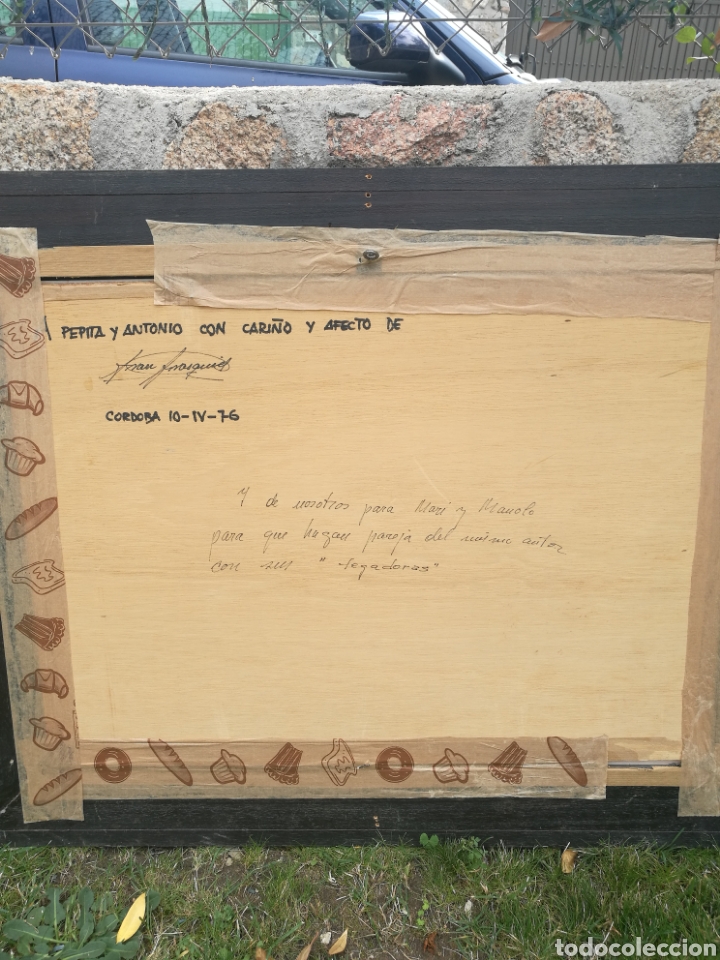 A PEPITA Y ANTONIO CON CARIÑO Y AFECTO DE
CORDOBA 10-IV-76
Y de nosotros para Mari y Manolo
para que hagan pareja del mismo autor
con sus "segadoras"
todocoleccion